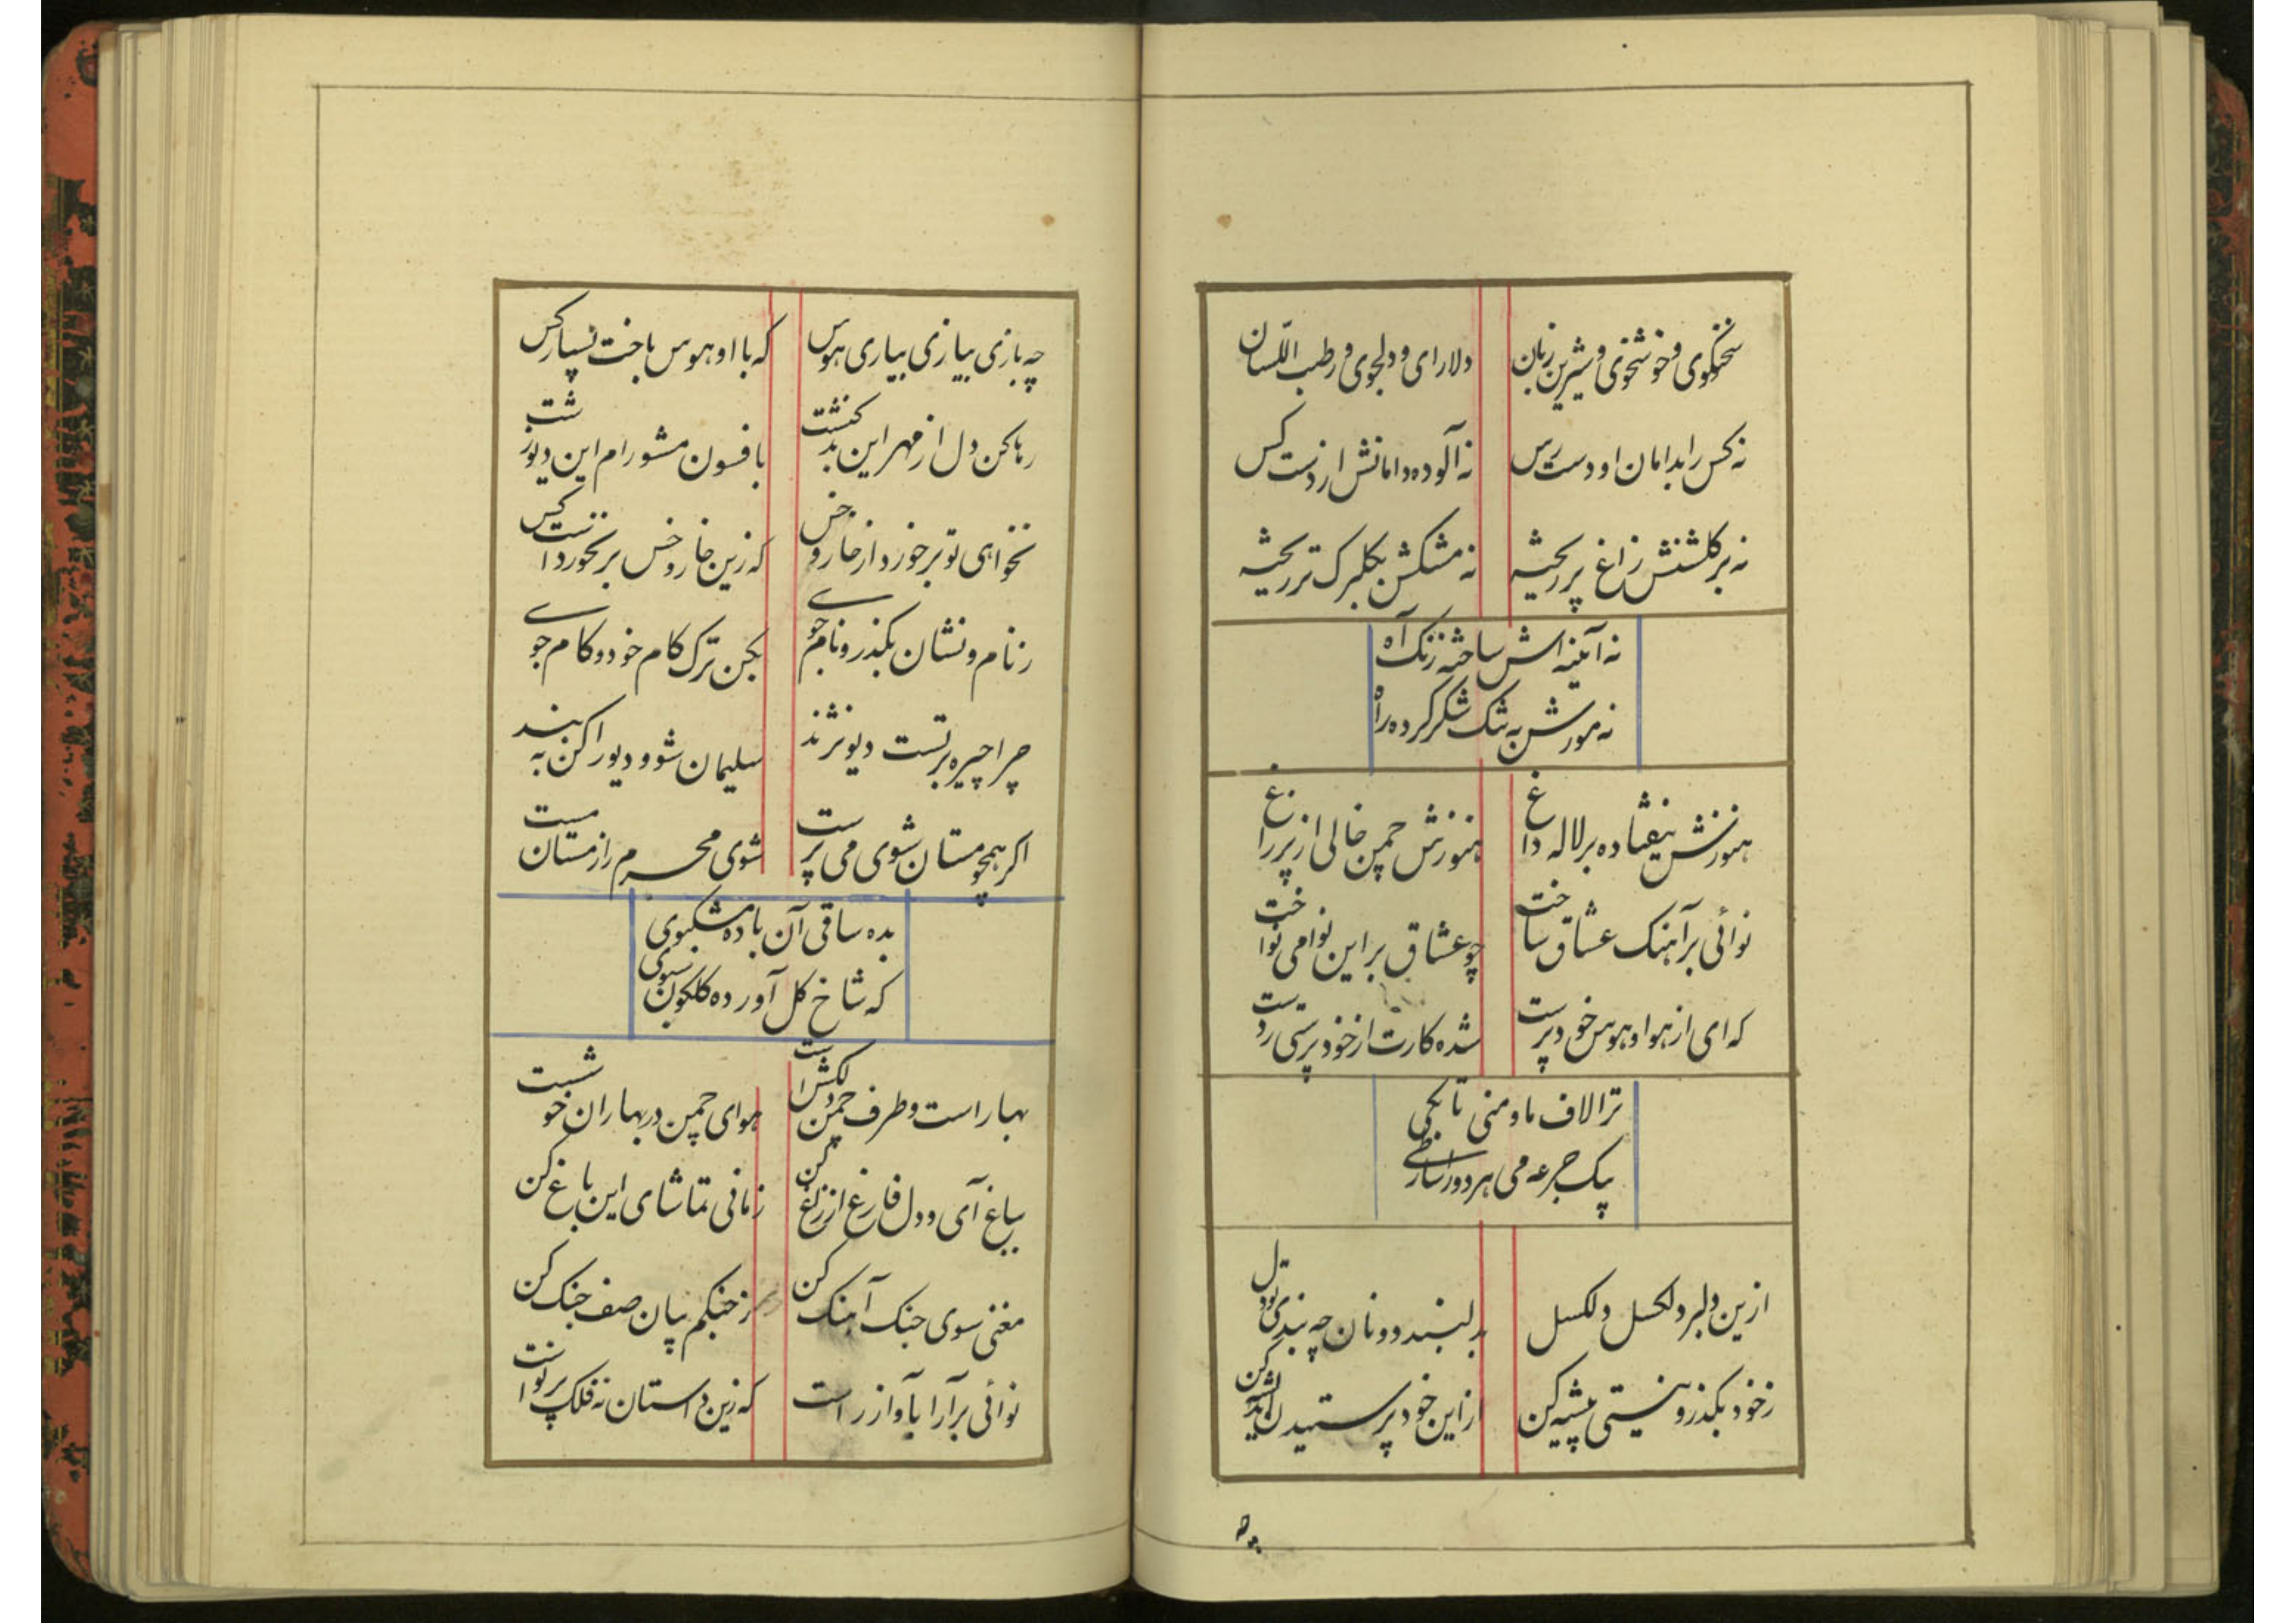 سخنکوی و خوشخوی و شیرین زبان دلارای و دلجوی و رطب اللّسان
نه کس را بدامان او دست رس نه آلوده دامانش از دست کس
نه بر کلشنش زاغ پر ریخته نه مشکش بکلبرک تر ریخته
نه آئینه اش ساخته زنک آه
نه مورش به تنک شکر کرده راه
هنوزش نیفتاده بر لاله داغ هنوزش چمن خالی از پر زاغ
نوائی بر آهنک عشاق ساخت چو عشاق بر این نوا می نواخت
که ای از هوا و هوس خود پرست شده کارت از خود پرستی ز دست
ترا لاف ما و منی تا بکی
بیک جرعه می هر دو را ساز طی
ازین دلبر دلکسل دلکسل به لبند دونان چه بندی تو دل
ز خود بکذر و نیستی پیشه کن از این خود پرستیدن اندیشه کن
چه
چه بازی بیازی بیاری هوس که با او هوس باخت بسیار کس
رها کن دل از مهر این بد کنشت بافسون مشو رام این دیو زشت
نخواهی تو بر خورد از خار و خس که زین خار و خس بر نخوردست کس
ز نام و نشان بکذر و نام جوی بکن ترک کام خود و کام جوی
چرا چیره بر تست دیو نژند سلیمان شو و دیو را کن به بند
اکر همچو مستان شوی می پرست شوی محرم راز مستان مست
بده ساقی آن باده مشکبوی
که شاخ کل آورده کلکون بسوی
بهار است و طرف چمن دلکش است هوای چمن در بهاران خوشست
بباغ آی و دل فارغ از زاغ کن زمانی تماشای این باغ کن
مغنی بسوی چنک آهنک کن ز چنکم بیان صف جنک کن
نوائی بر آرا بآواز راست که زین داستان نه فلک پر نواست